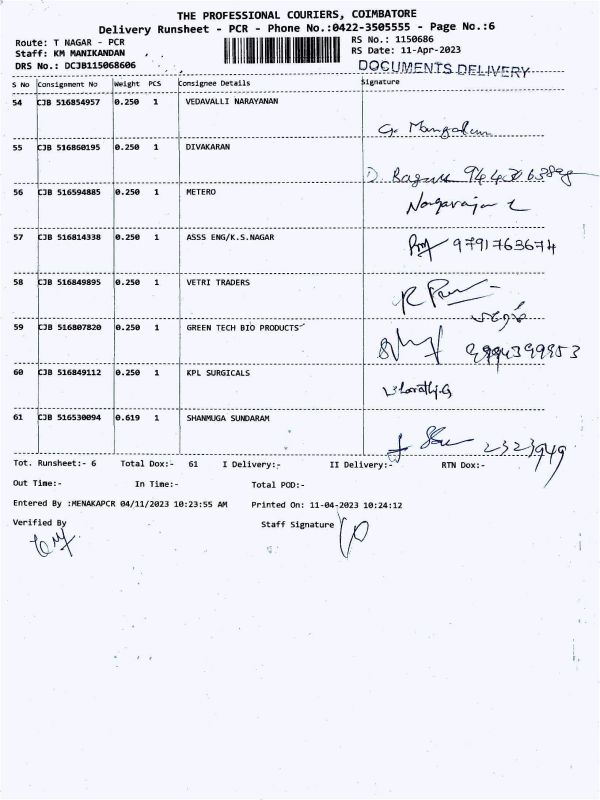 THE PROFESSIONAL COURIERS, COIMBATORE
Delivery Runsheet - PCR - Phone No.:0422-3505555 - Page No.:6
Route: T NAGAR - PCR RS No.: 1150686
Staff: KM MANIKANDAN RS Date: 11-Apr-2023
DRS No.: DCJB115068606 DOCUMENTS DELIVERY
S No Consignment No Weight PCS Consignee Details Signature
54 CJB 516854957 0.250 1 VEDAVALLI NARAYANAN
G. Mangalam
55 CJB 516860195 0.250 1 DIVAKARAN
D.
56 CJB 516594885 0.250 1 METERO
Nagarajan
57 CJB 516814338 0.250 1 ASSS ENG/K.S.NAGAR 9791763674
58 CJB 516849895 0.250 1 VETRI TRADERS
59 CJB 516807820 0.250 1 GREEN TECH BIO PRODUCTS
9994399953
60 CJB 516849112 0.250 1 KPL SURGICALS
Bharathi.G
61 CJB 516530094 0.619 1 SHANMUGA SUNDARAM
2323949
Tot. Runsheet:- 6 Total Dox:- 61 I Delivery:- II Delivery:- RTN Dox:-
Out Time:- In Time:- Total POD:-
Entered By :MENAKAPCR 04/11/2023 10:23:55 AM Printed On: 11-04-2023 10:24:12
Verified By Staff Signature